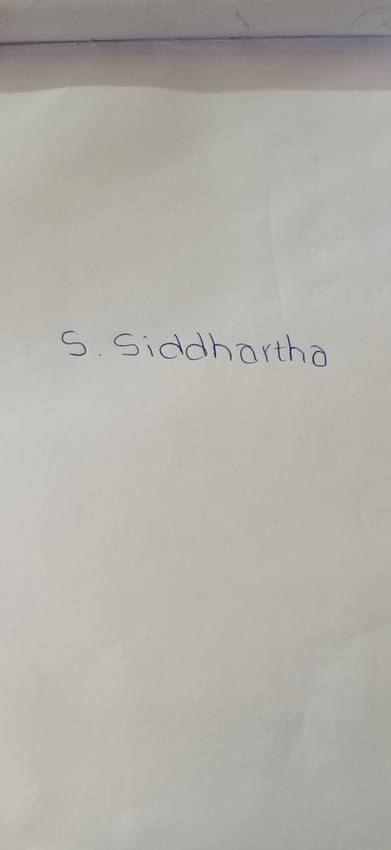 S. Siddhartha